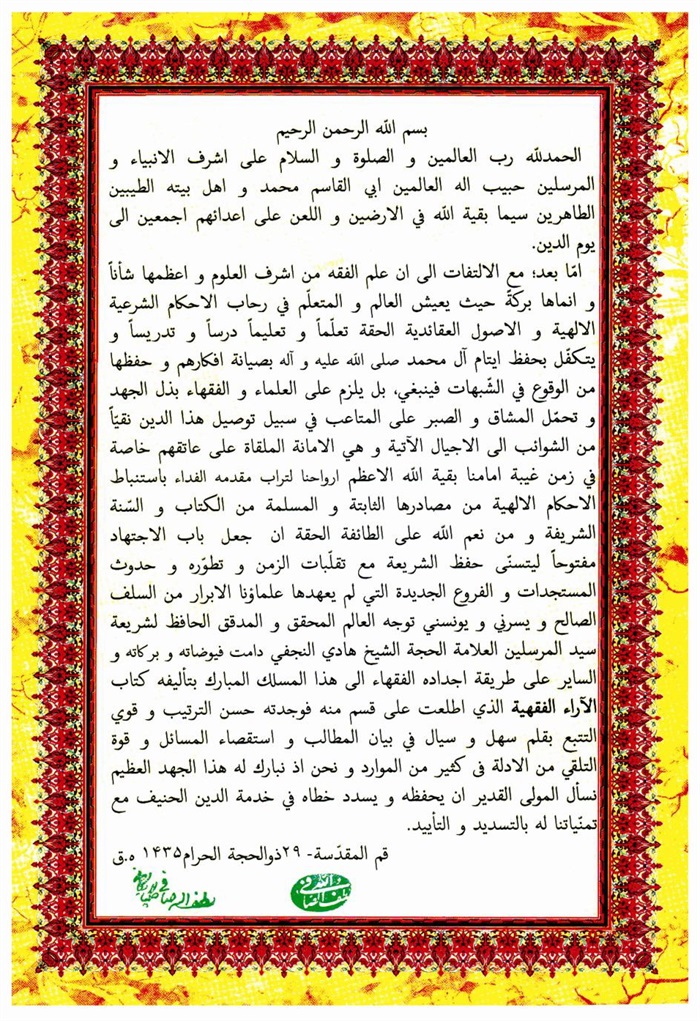 بسم الله الرحمن الرحیم
الحمدلله رب العالمین و الصلوة و السلام علی اشرف الانبیاء و
المرسلین حبیب اله العالمین ابي القاسم محمد و اهل بیته الطیبین
الطاهرین سیما بقیة الله في الارضین و اللعن علی اعدائهم اجمعین الی
یوم الدین.
امّا بعد؛ مع الالتفات الی ان علم الفقه من اشرف العلوم و اعظمها شأناً
و انماها برکةً حیث یعیش العالم و المتعلّم في رحاب الاحکام الشرعیة
الالهیة و الاصول العقائدیة الحقة تعلّماً و تعلیماً درساً و تدریساً و
یتکفّل بحفظ ایتام آل محمد صلی الله علیه و آله بصیانة افکارهم و حفظها
من الوقوع في الشّبهات فینبغي، بل یلزم علی العلماء و الفقهاء بذل الجهد
و تحمّل المشاق و الصبر علی المتاعب في سبیل توصیل هذا الدین نقیّاً
من الشوائب الی الاجیال الآتیة و هي الامانة الملقاة علی عاتقهم خاصة
في زمن غیبة امامنا بقیة الله الاعظم ارواحنا لتراب مقدمه الفداء باستنباط
الاحکام الالهیة من مصادرها الثابتة و المسلمة من الکتاب و السّنة
الشریفة و من نعم الله علی الطائفة الحقة ان جعل باب الاجتهاد
مفتوحاً لیتسنّی حفظ الشریعة مع تقلّبات الزمن و تطوّره و حدوث
المستجدات و الفروع الجدیدة التي لم یعهدها علماؤنا الابرار من السلف
الصالح و یسرني و یونسني توجه العالم المحقق و المدقق الحافظ لشریعة
سید المرسلین العلامة الحجة الشیخ هادي النجفي دامت فیوضاته و برکاته و
السایر علی طریقة اجداده الفقهاء الی هذا المسلك المبارك بتألیفه کتاب
الآراء الفقهیة الذي اطلعت علی قسم منه فوجدته حسن الترتیب و قوي
التتبع بقلم سهل و سیال في بیان المطالب و استقصاء المسائل و قوة
التلقي من الادلة في کثیر من الموارد و نحن اذ نبارك له هذا الجهد العظیم
نسأل المولی القدیر ان یحفظه و یسدد خطاه في خدمة الدین الحنیف مع
تمنّیاتنا له بالتسدید و التأیید.
قم المقدّسة- ۲۹ذوالحجة الحرام۱۴۳۵ ه.ق
لطف الله صافي